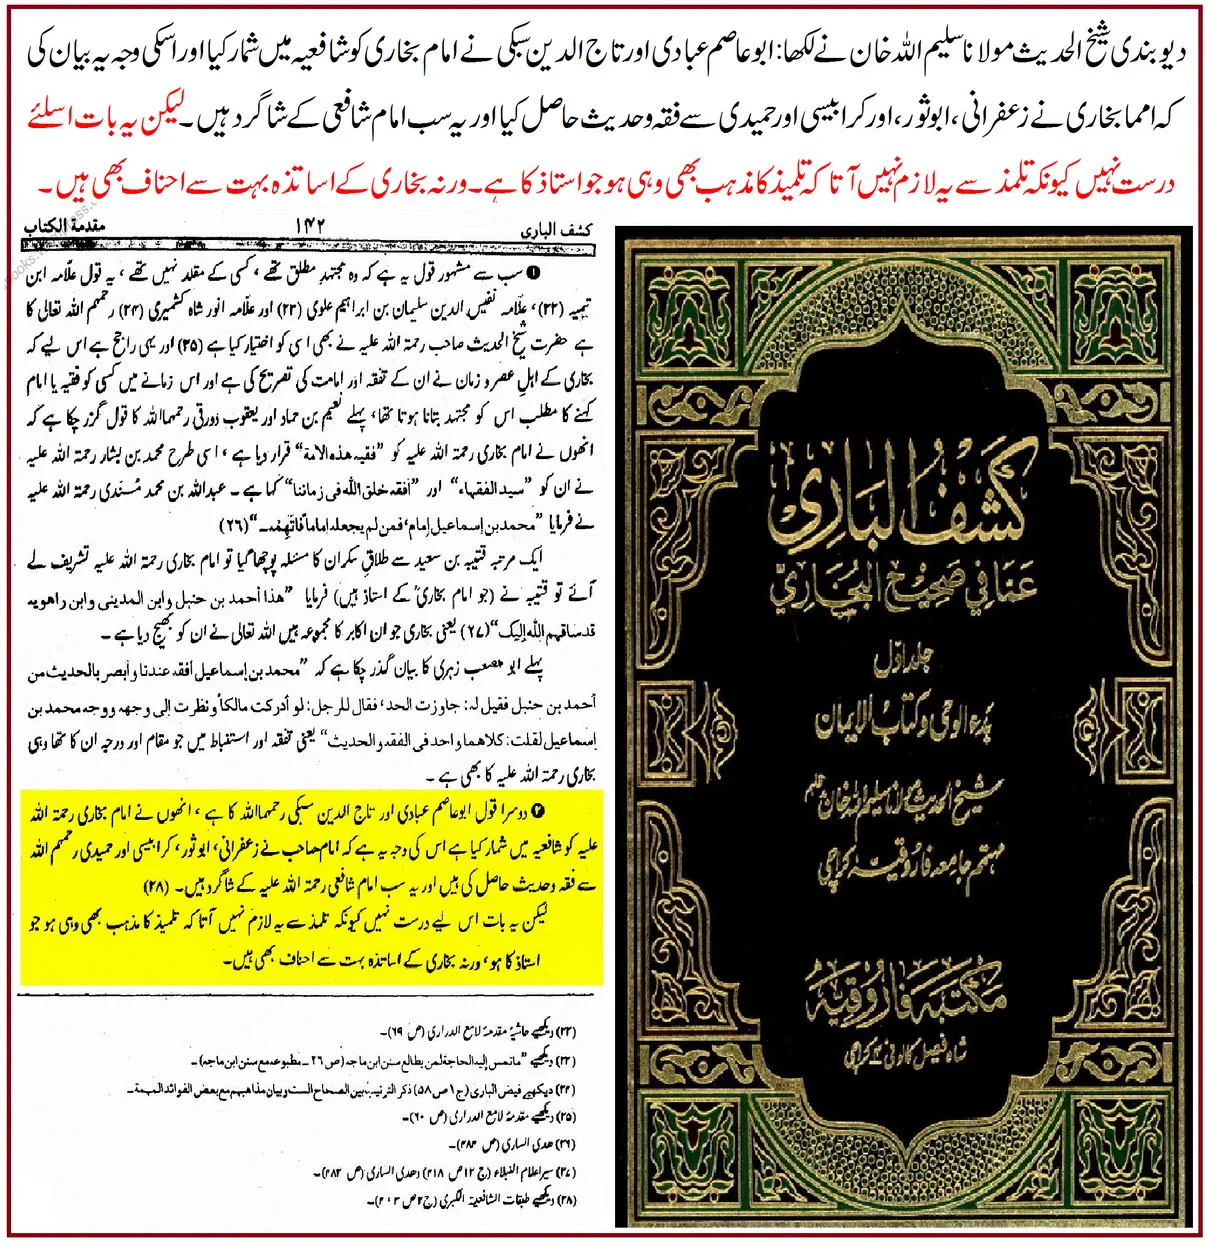 دیوبندی شیخ الحدیث مولانا سلیم اللہ خان نے لکھا: ابو عاصم عبادی اور تاج الدین سبکی نے امام بخاری کو شافعیہ میں شمار کیا اور اسکی وجہ یہ بیان کی
کہ امما بخاری نے زعفرانی، ابوثور، اور کرابیسی اور حمیدی سے فقہ وحدیث حاصل کیا اور یہ سب امام شافعی کے شاگرد ہیں۔ لیکن یہ بات اسلئے
درست نہیں کیونکہ تلمذ سے یہ لازم نہیں آتا کہ تلمیذ کا مذہب بھی وہی ہو جو استاذ کا ہے۔ ورنہ بخاری کے اساتذہ بہت سے احناف بھی ہیں۔
کشف الباری ۱۴۲ مقدمة الكتاب
❶ سب سے مشہور قول یہ ہے کہ وہ مجتہد مطلق تھے ، کسی کے مقلد نہیں تھے ، یہ قول علّامہ ابن
تیمیہ (۲۲)، علّامہ نفیس الدین سلیمان بن ابراہیم علوی (۲۳) اور علّامہ انور شاہ کشمیری (۲۴) رحمہم اللہ تعالٰی کا
ہے حضرت شیخ الحدیث صاحب رحمۃ اللہ علیہ نے بھی اسی کو اختیار کیا ہے (۲۵) اور یہی راجح ہے اس لیے کہ
بخاری کے اہل عصر و زمان نے ان کے تفقہ اور امامت کی تصریح کی ہے اور اس زمانے میں کسی کو فقیہ یا امام
کہنے کا مطلب اس کو مجتہد بتانا ہوتا تھا، پہلے نعیم بن حماد اور یعقوب دورقی رحمہما اللہ کا قول گزر چکا ہے کہ
انھوں نے امام بخاری رحمۃ اللہ علیہ کو "فقيه هذه الامة" قرار دیا ہے ، اسی طرح محمد بن بشار رحمۃ اللہ علیہ
نے ان کو "سيد الفقهاء" اور "أفقه خلق الله فى زماننا" کہا ہے ۔ عبداللہ بن محمد مُسندی رحمۃ اللہ علیہ
نے فرمایا "محمد بن إسماعيل إمام، فمن لم يجعله إماماً فاتَّهِمْه۔"(۲۶)
ایک مرتبہ قتیبہ بن سعید سے طلاقِ سکران کا مسئلہ پوچھا گیا تو امام بخاری رحمۃ اللہ علیہ تشریف لے
آئے تو قتیبہ نے (جو امام بخاریؒ کے استاذ ہیں) فرمایا "هذا أحمد بن حنبل وابن المدينى وابن راهويه
قد ساقهم الله إليك"(۲۷) یعنی بخاری جو ان اکابر کا مجموعہ ہیں اللہ تعالٰی نے ان کو بھیج دیا ہے ۔
پہلے ابو مصعب زہری کا بیان گذر چکا ہے کہ "محمد بن إسماعيل أفقه عندنا وأبصر بالحديث من
أحمد بن حنبل فقيل له: جاوزت الحد، فقال للرجل: لو أدركت مالكاً ونظرت إلى وجهه ووجه محمد بن
إسماعيل لقلت: كلاهما واحد فى الفقه والحديث" یعنی تفقہ اور استنباط میں جو مقام اور درجہ ان کا تھا وہی
بخاری رحمۃ اللہ علیہ کا بھی ہے ۔
❷ دوسرا قول ابوعاصم عبادی اور تاج الدین سبکی رحمہما اللہ کا ہے ، انھوں نے امام بخاری رحمۃ اللہ
علیہ کو شافعیہ میں شمار کیا ہے اس کی وجہ یہ ہے کہ امام صاحب نے زعفرانی، ابوثور، کرابیسی اور حمیدی رحمہم اللہ
سے فقہ وحدیث حاصل کی ہیں اور یہ سب امام شافعی رحمۃ اللہ علیہ کے شاگرد ہیں۔ (۲۸)
لیکن یہ بات اس لیے درست نہیں کیونکہ تلمذ سے یہ لازم نہیں آتا کہ تلمیذ کا مذہب بھی وہی ہو جو
استاذ کا ہو، ورنہ بخاری کے اساتذہ بہت سے احناف بھی ہیں۔
(۲۲) دیکھیے حاشیۂ مقدمۂ لامع الدراری (ص ۶۹)۔
(۲۳) دیکھیے "ماتمس إليه الحاجة لمن يطالع سنن ابن ماجه (ص ۲۶ ۔ مطبوعه مع سنن ابن ماجه)۔
(۲۴) دیکھیے فیض الباری (ج۱ ص۵۸) ذكر الترتيب بين الصحاح الست وبيان مذاهبهم مع بعض الفوائد المهمة۔
(۲۵) دیکھیے مقدمۂ لامع الدراری (ص ۶۰)۔
(۲۶) ھدی الساری (ص ۴۸۴)۔
(۲۷) سیر اعلام النبلاء (ج ۱۲ ص ۴۱۸) وھدی الساری (ص ۴۸۲)۔
(۲۸) دیکھیے طبقات الشافعیۃ الکبری (ج۲ ص ۳ ، ۴)۔
كشف الباري
عما في صحيح البخاري
جلد اوّل
بدء الوحی و کتاب الایمان
شیخ الحدیث مولانا سلیم اللہ خان
مہتمم جامعہ فاروقیہ کراچی
مکتبہ فاروقیہ
شاہ فیصل کالونی کراچی